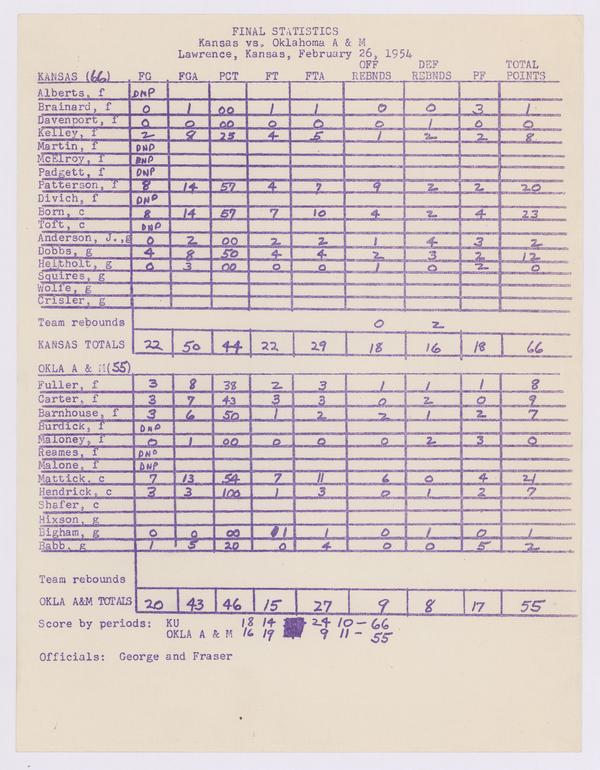 FINAL STATISTICS
Kansas vs. Oklahoma A & M
Lawrence, Kansas, February 26, 1954
OFF DEF TOTAL
KANSAS (66) FG FGA PCT FT FTA REBNDS REBNDS PF POINTS
Alberts, f DNP
Brainard, f 0 1 00 1 1 0 0 3 1
Davenport, f 0 0 00 0 0 0 1 0 0
Kelley, f 2 8 25 4 5 1 2 2 8
Martin, f DNP
McElroy, f DNP
Padgett, f DNP
Patterson, f 8 14 57 4 7 9 2 2 20
Divich, f DNP
Born, c 8 14 57 7 10 4 2 4 23
Toft, c DNP
Anderson, J.,g 0 2 00 2 2 1 4 3 2
Dobbs, g 4 8 50 4 4 2 3 2 12
Heitholt, g 0 3 00 0 0 1 0 2 0
Squires, g
Wolfe, g
Crisler, g
Team rebounds 0 2
KANSAS TOTALS 22 50 44 22 29 18 16 18 66
OKLA A & M(55)
Fuller, f 3 8 38 2 3 1 1 1 8
Carter, f 3 7 43 3 3 0 2 0 9
Barnhouse, f 3 6 50 1 2 2 1 2 7
Burdick, f DNP
Maloney, f 0 1 00 0 0 0 2 3 0
Reames, f DNP
Malone, f DNP
Mattick. c 7 13 54 7 11 6 0 4 21
Hendrick, c 3 3 100 1 3 0 1 2 7
Shafer, c
Hixson, g
Bigham, g 0 0 00 1 1 0 1 0 1
Babb, g 1 5 20 0 4 0 0 5 2
Team rebounds
OKLA A&M TOTALS 20 43 46 15 27 9 8 17 55
Score by periods: KU 18 14 24 10 - 66
OKLA A & M 16 19 9 11 - 55
Officials: George and Fraser